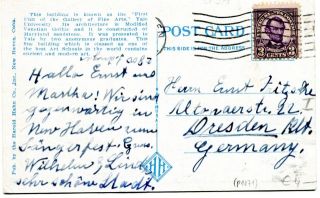 This building is known as the "First
Unit of the Gallery of Fine Arts," Yale
University. Its architecture is Modified
Venetian Gothic and it is constructed of
Maryland sandstone. It was presented to
Yale by two anonymous graduates. This
fine building which is classed as one of
the best Art Schools in the world contains
ancient and modern art.
THIS SIDE IS FOR THE ADDRESS
Pub. by the Harold Hahn Co., Inc., New
Hallo Ernst und
Martha! Wir sind
gegenwärtig in
New Haven zum
Sängerfest. Gruss
Wilhelm &
Sehr schöne Stadt.
Herrn Ernst
Dresden Alt.
Germany.
3 CENTS 3
HH
(P1171)